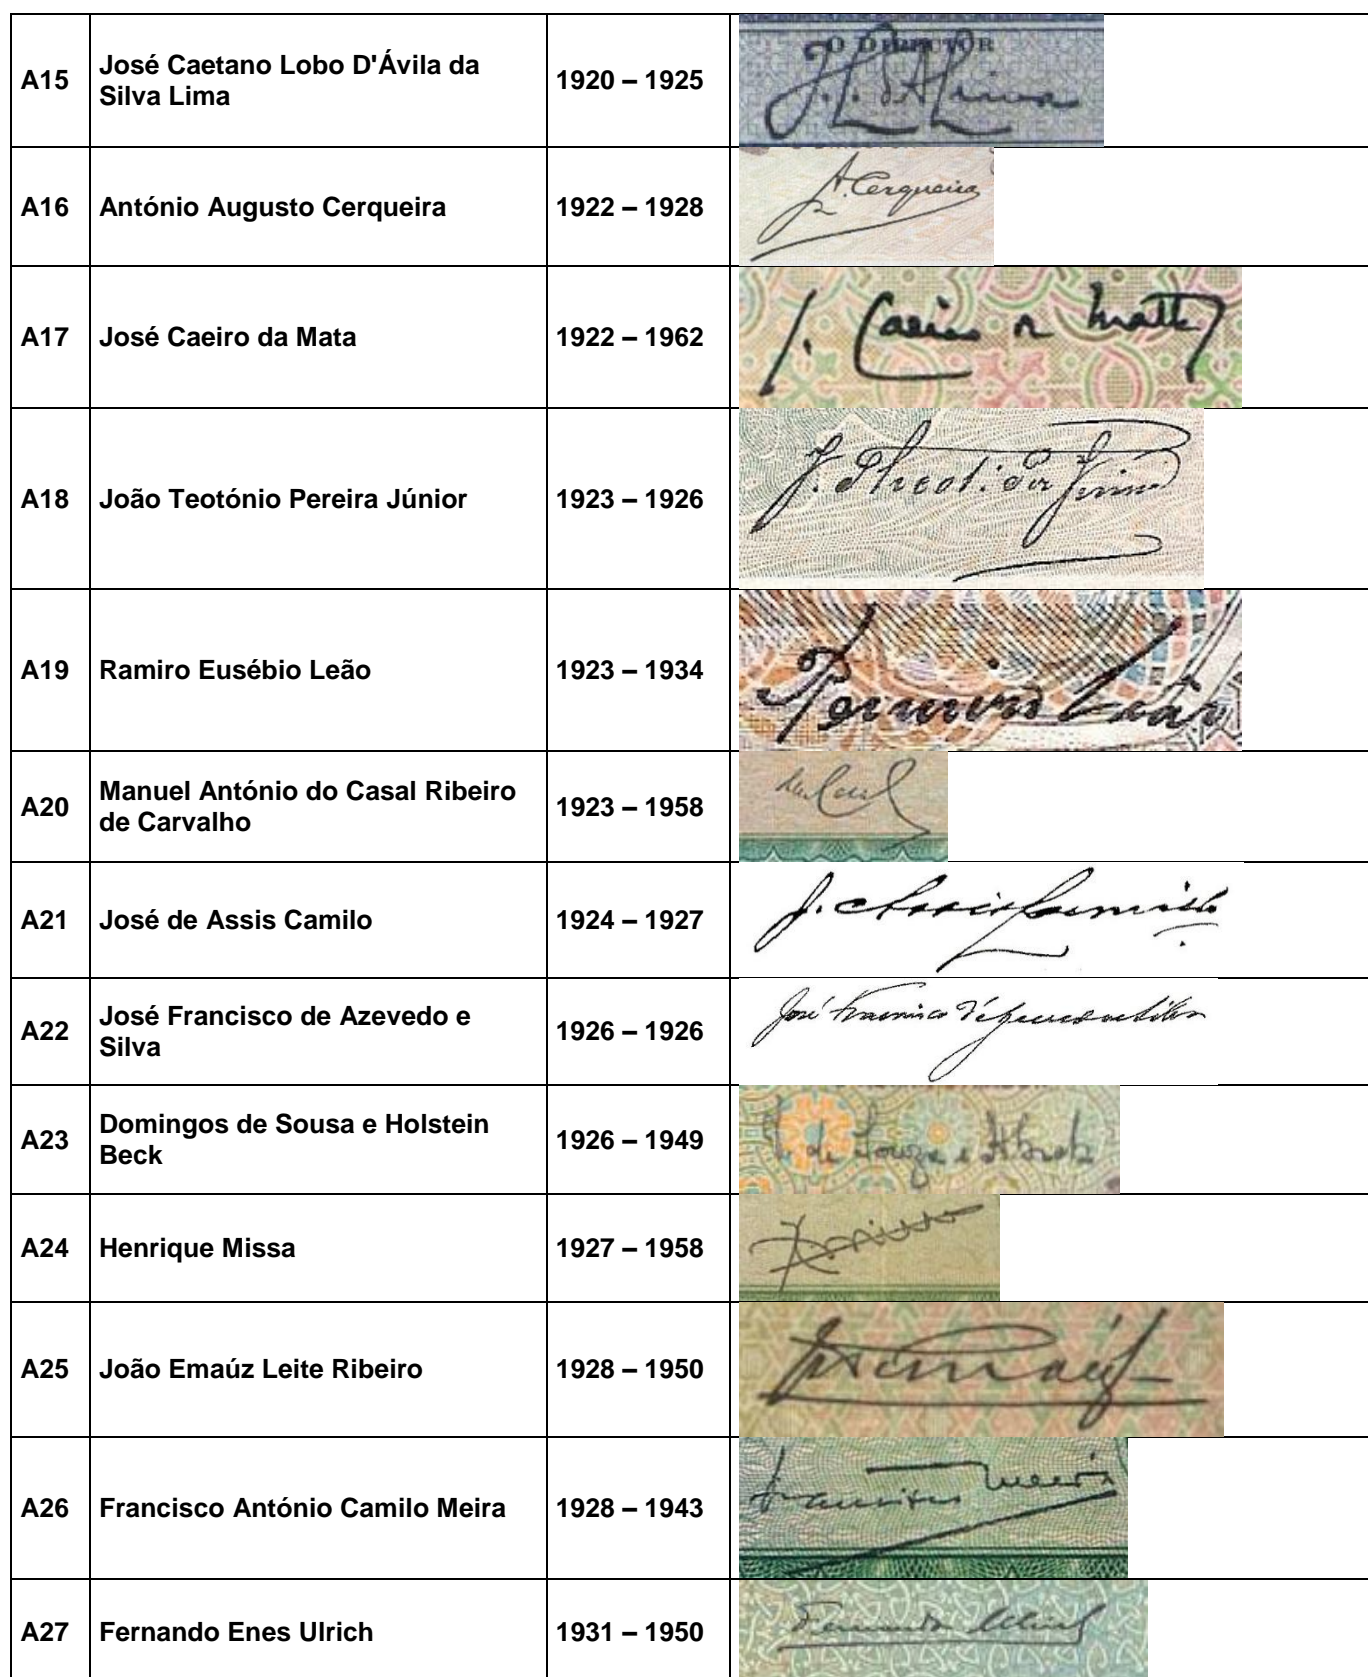 A15
José Caetano Lobo D'Ávila da
Silva Lima
1920 – 1925
O DIRECTOR
A16
António Augusto Cerqueira
1922 – 1928
A. Cerqueira
A17
José Caeiro da Mata
1922 – 1962
J. Caeiro da Matta
A18
João Teotónio Pereira Júnior
1923 – 1926
A19
Ramiro Eusébio Leão
1923 – 1934
Ramiro Leão
A20
Manuel António do Casal Ribeiro
de Carvalho
1923 – 1958
A21
José de Assis Camilo
1924 – 1927
J. Assis Camillo
A22
José Francisco de Azevedo e
Silva
1926 – 1926
José Francisco d'Azevedo e Silva
A23
Domingos de Sousa e Holstein
Beck
1926 – 1949
A24
Henrique Missa
1927 – 1958
A25
João Emaúz Leite Ribeiro
1928 – 1950
A26
Francisco António Camilo Meira
1928 – 1943
Francisco Meira
A27
Fernando Enes Ulrich
1931 – 1950
Fernando Ulrich